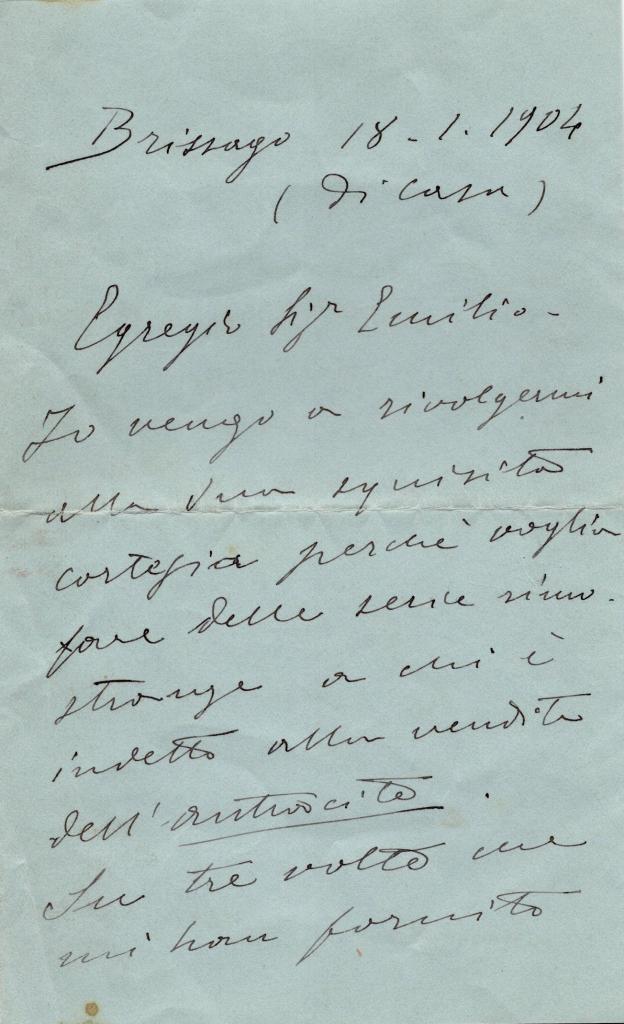 Brissago 18-1.1904
(di casa)
Egregio Sigr Emilio-
Io vengo a rivolgermi
alla Sua squisita
cortesia perchè voglia
fare delle serie rimo-
stranze a chi è
indetto alla vendita
dell'antracite.
Su tre volte che
mi han fornito